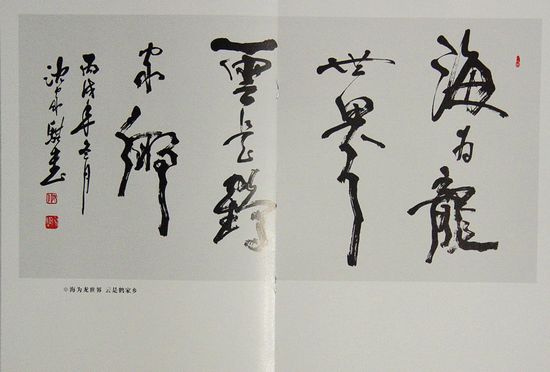 海为龍
世界
雲是鶴
家鄉
丙戌年冬月
海为龙世界 云是鹤家乡